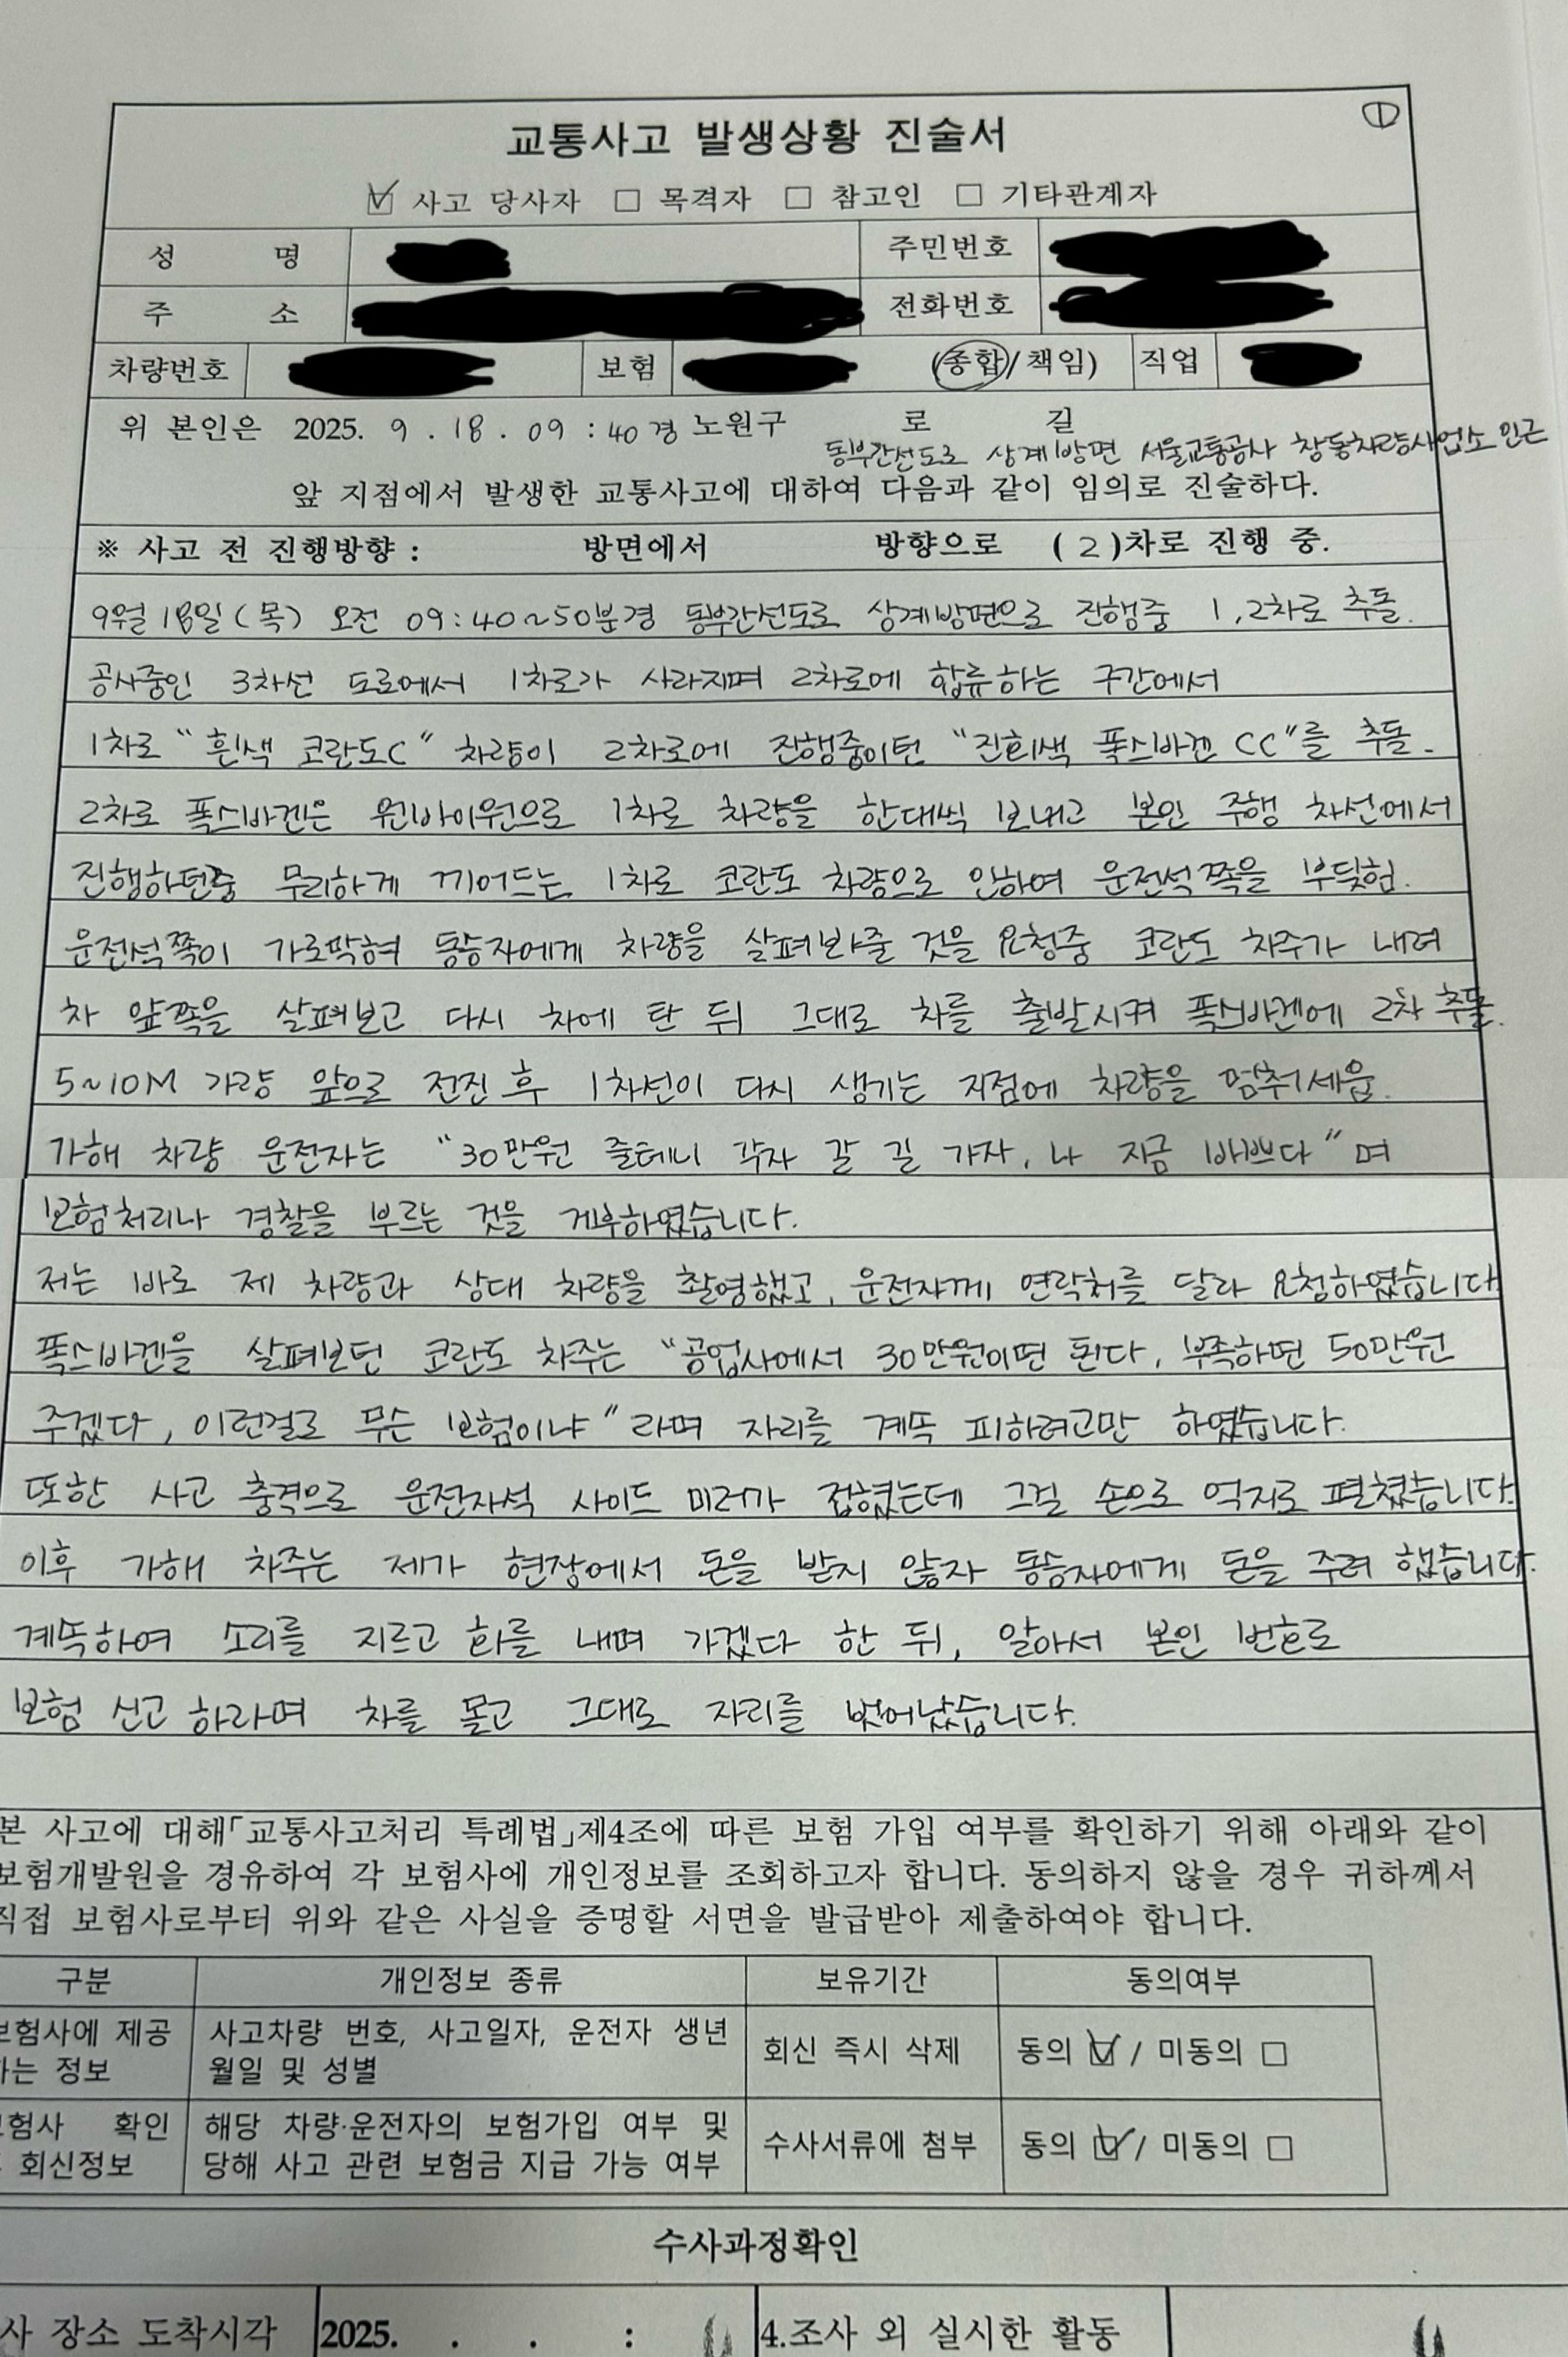 ①
교통사고 발생상황 진술서
☑ 사고 당사자 □ 목격자 □ 참고인 □ 기타관계자
성 명 주민번호
주 소 전화번호
차량번호 보험 (종합/책임) 직업
위 본인은 2025. 9 . 18 . 09 : 40경 노원구 로 길
동부간선도로 상계방면 서울교통공사 창동차량사업소 인근
앞 지점에서 발생한 교통사고에 대하여 다음과 같이 임의로 진술하다.
※ 사고 전 진행방향 : 방면에서 방향으로 ( 2 )차로 진행 중.
9월 18일(목) 오전 09:40~50분경 동부간선도로 상계방면으로 진행중 1,2차로 추돌.
공사중인 3차선 도로에서 1차로가 사라지며 2차로에 합류하는 구간에서
1차로 "흰색 코란도C" 차량이 2차로에 진행중이던 "진회색 폭스바겐 CC"를 추돌.
2차로 폭스바겐은 원바이원으로 1차로 차량을 한대씩 보내고 본인 주행 차선에서
진행하던중 무리하게 끼어드는 1차로 코란도 차량으로 인하여 운전석쪽을 부딪힘.
운전석쪽이 가로막혀 동승자에게 차량을 살펴봐줄 것을 요청중 코란도 차주가 내려
차 앞쪽을 살펴보고 다시 차에 탄 뒤 그대로 차를 출발시켜 폭스바겐에 2차 추돌.
5~10M 가량 앞으로 전진 후 1차선이 다시 생기는 지점에 차량을 멈춰세움.
가해 차량 운전자는 "30만원 줄테니 각자 갈 길 가자, 나 지금 바쁘다"며
보험처리나 경찰을 부르는 것을 거부하였습니다.
저는 바로 제 차량과 상대 차량을 촬영했고, 운전자께 연락처를 달라 요청하였습니다
폭스바겐을 살펴보던 코란도 차주는 "공업사에서 30만원이면 된다, 부족하면 50만원
주겠다, 이런걸로 무슨 보험이냐"라며 자리를 계속 피하려고만 하였습니다.
또한 사고 충격으로 운전자석 사이드 미러가 접혔는데 그걸 손으로 억지로 펼쳤습니다.
이후 가해 차주는 제가 현장에서 돈을 받지 않자 동승자에게 돈을 주려 했습니다.
계속하여 소리를 지르고 화를 내며 가겠다 한 뒤, 알아서 본인 번호로
보험 신고 하라며 차를 몰고 그대로 자리를 벗어났습니다.
본 사고에 대해「교통사고처리 특례법」제4조에 따른 보험 가입 여부를 확인하기 위해 아래와 같이
보험개발원을 경유하여 각 보험사에 개인정보를 조회하고자 합니다. 동의하지 않을 경우 귀하께서
직접 보험사로부터 위와 같은 사실을 증명할 서면을 발급받아 제출하여야 합니다.
구분 개인정보 종류 보유기간 동의여부
보험사에 제공 사고차량 번호, 사고일자, 운전자 생년
하는 정보 월일 및 성별 회신 즉시 삭제 동의 ☑ / 미동의 □
보험사 확인 해당 차량·운전자의 보험가입 여부 및
회신정보 당해 사고 관련 보험금 지급 가능 여부 수사서류에 첨부 동의 ☑ / 미동의 □
수사과정확인
사 장소 도착시각 2025. . . : 4.조사 외 실시한 활동